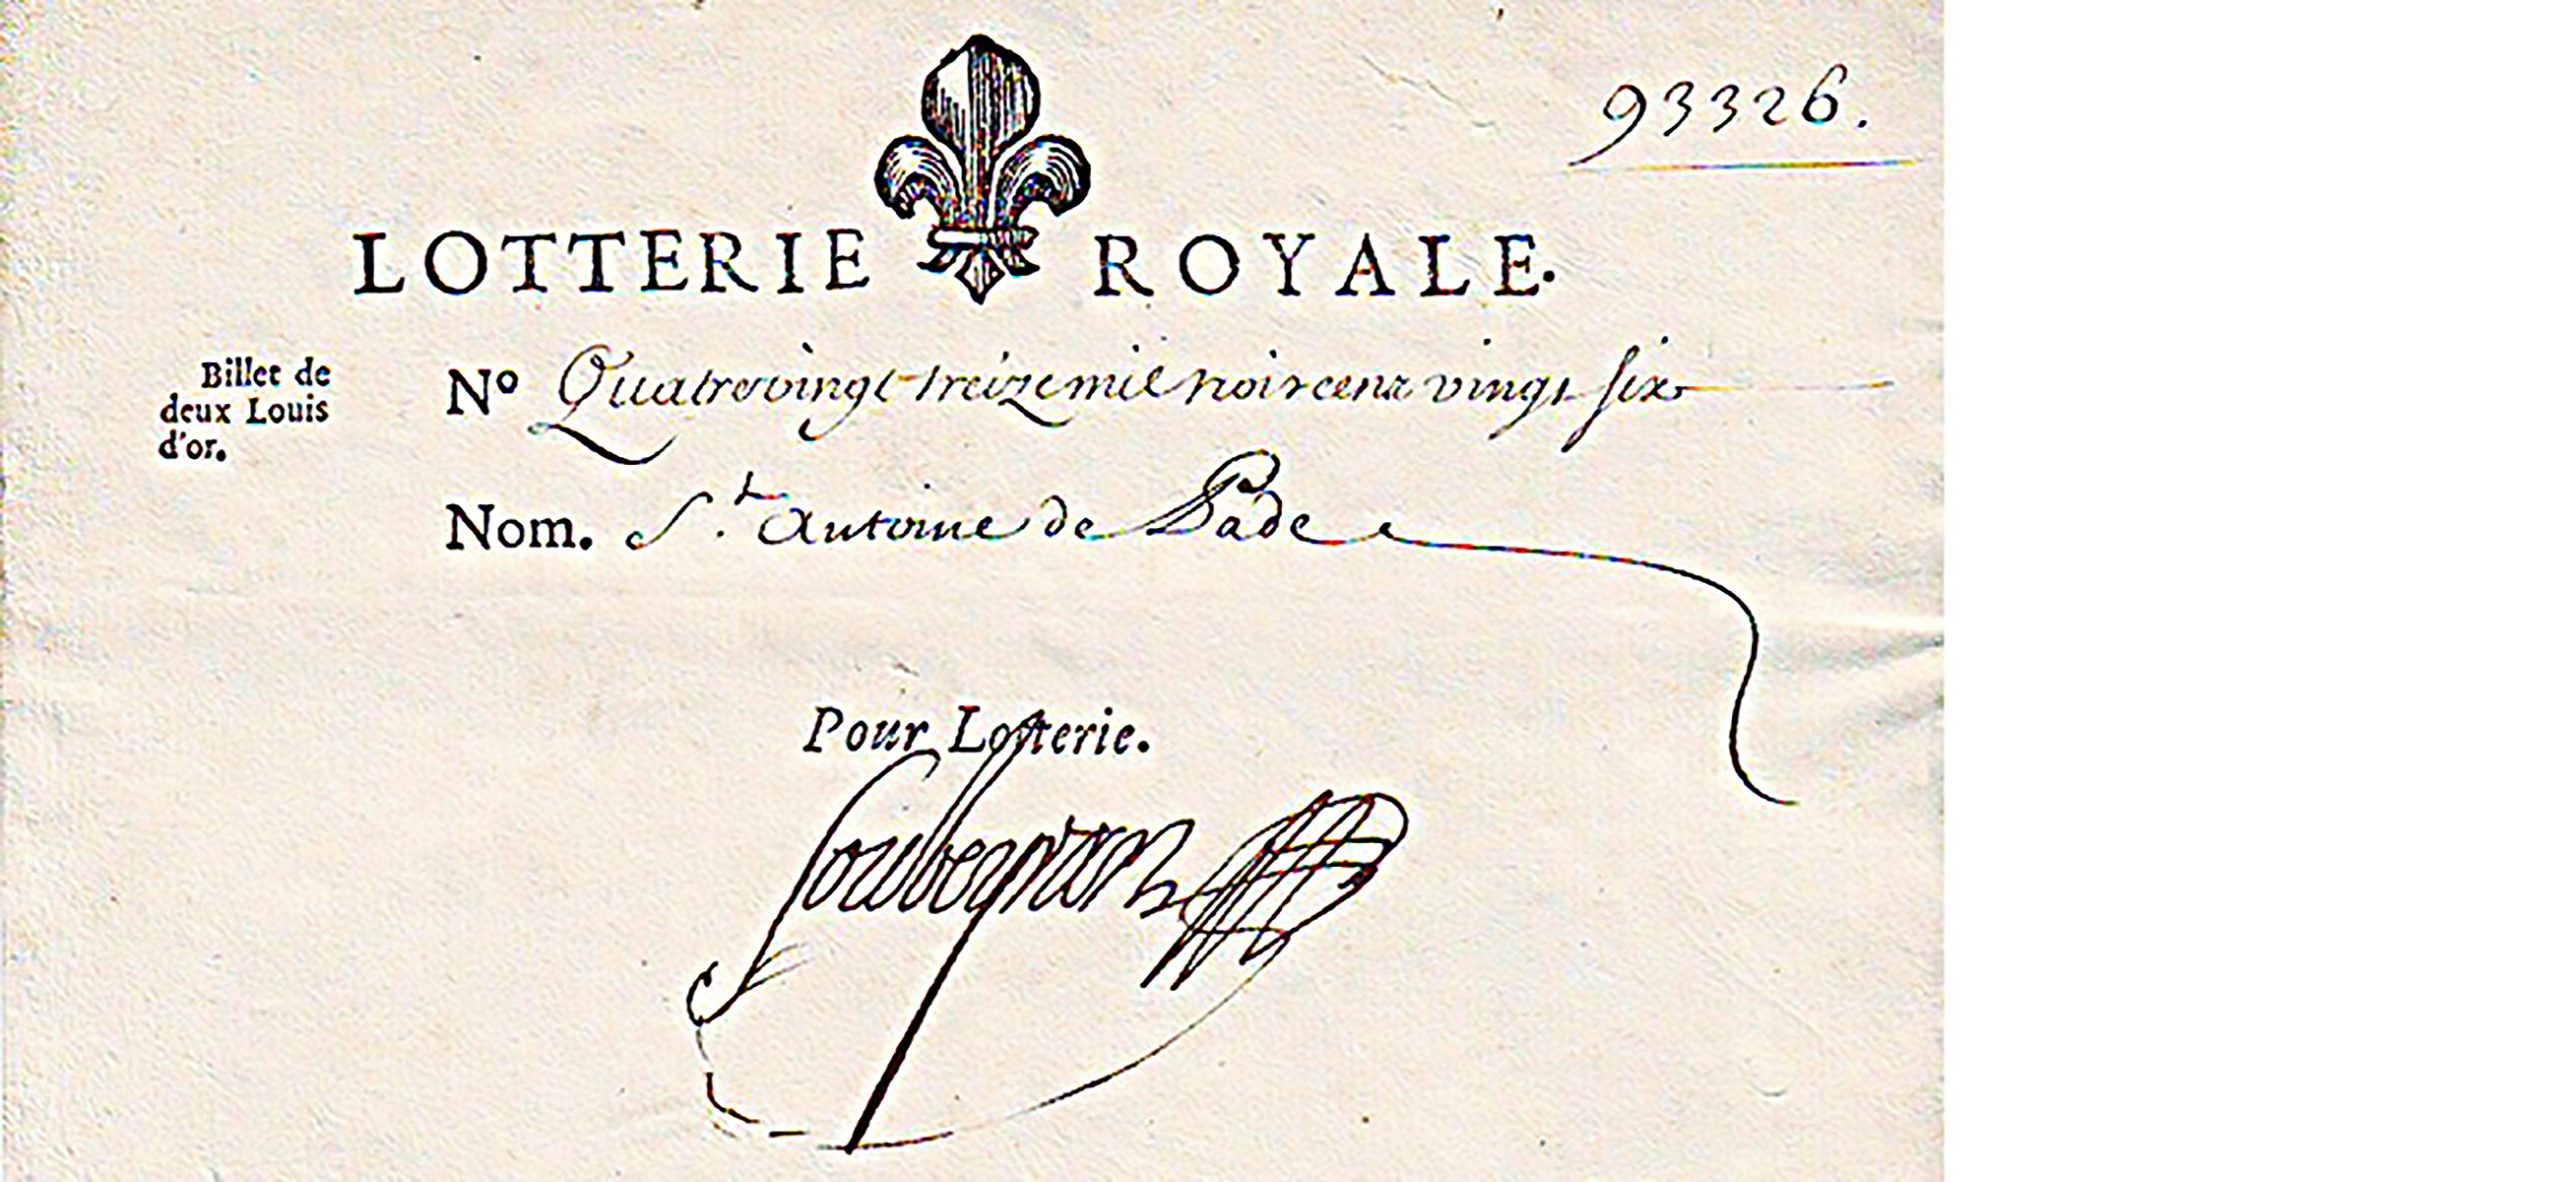 93326.
LOTTERIE ROYALE.
Billet de
deux Louis
d'or.
Nº Quatrevingt treize mil trois cens vingt six
Nom. St. Antoine de Pade
Pour Lotterie.